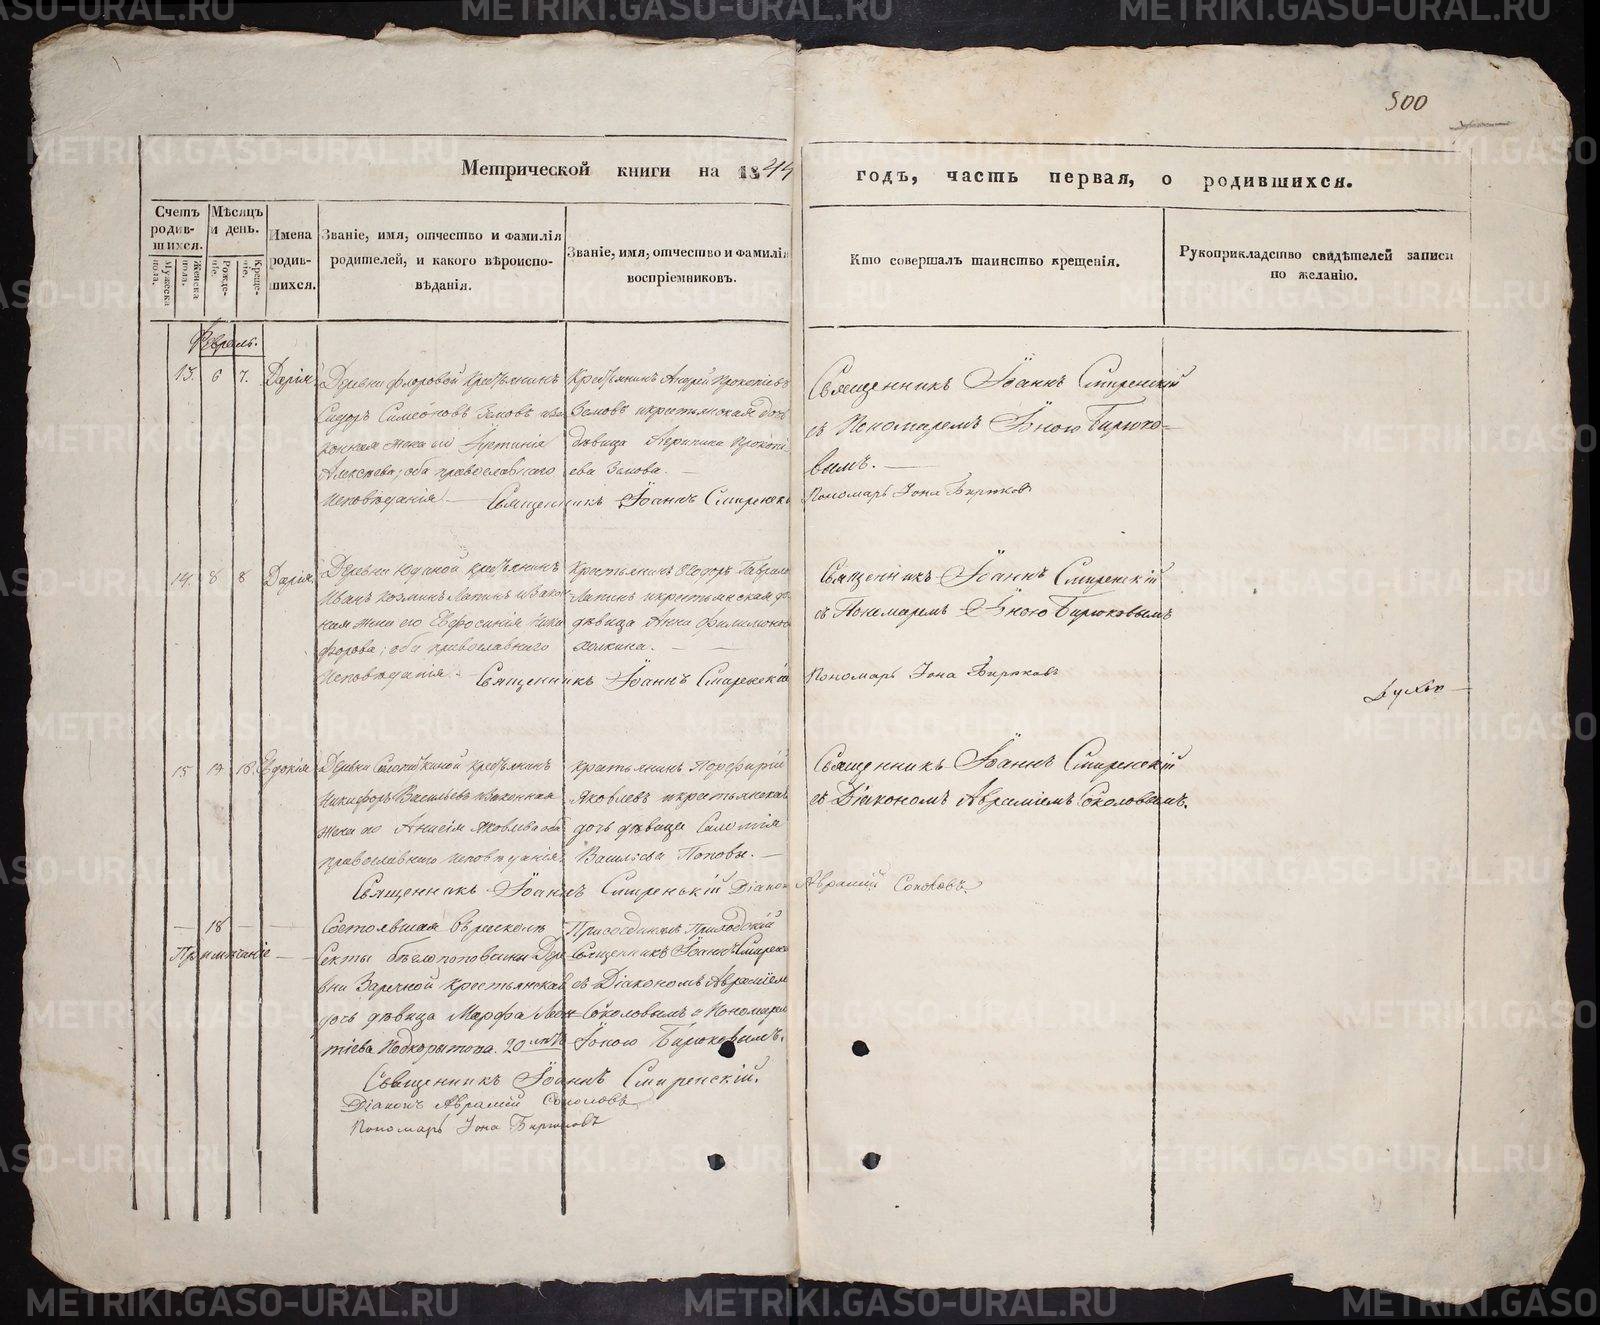 500
Метрической книги на 1844 годъ, часть первая, о родившихся.
Счетъ родив-шихся.
Мужеска пола.
Женска пола.
Мѣсяцъ и день.
Рожде-нія.
Креще-нія.
Имена родив-шихся.
Званіе, имя, отчество и фамилія
родителей, и какого вѣроиспо-
вѣданія.
Званіе, имя, отчество и фамилія
воспріемниковъ.
Кто совершалъ таинство крещенія.
Рукоприкладство свидѣтелей записи
по желанію.
Февраль.
13. 6 7. Дарія
Деревни Флоровой крестьянинъ
Сидоръ Симеоновъ Зємовъ и за
конная жена его Устинія
Алексѣева; оба православнаго
исповѣданія. Священникъ Іоаннъ Смиренскі
Крестьянинъ Андрей Прокопіевъ
и крестьянская дочь
дѣвица Прокопі
ева
Священникъ Іоаннъ Смиренскій
съ Пономаремъ Іоною Бирюко-
вымъ.
Пономарь Іона Бирюковъ
14. 8 8 Дарія
Деревни Юдиной крестьянинъ
Иванъ Козминъ Лапинъ и закон
ная жена его Евфросинія Ники
форова; оба православнаго
исповѣданія. Священникъ Іоаннъ Смиренскій
Крестьянинъ Ѳеодоръ Гаврило
Лапинъ и крестьянская до
дѣвица Анна Филимонов
Священникъ Іоаннъ Смиренскій
съ Пономаремъ Іоною Бирюковымъ
Пономарь Іона Бирюковъ
15 17 18. Евдокія
Деревни крестьянинъ
Никифоръ Васильевъ и законная
жена его Анисія Яковлева оба
православнаго исповѣданія.
Крестьянинъ Порфирій
Яковлевъ и крестьянская
дочь дѣвица Саломія
Васильева Поповы.
Священникъ Іоаннъ Смиренскій Діаконъ Аврамій Соколовъ
Священникъ Іоаннъ Смиренскій
съ Діакономъ Авраміемъ Соколовымъ.
— 18 — —
Примѣчаніе
Состоявшая въ расколѣ
секты бѣглопоповщины Дере
вни Заречной крестьянская
дочь дѣвица Марфа Леон
тіева Подкорытова. 20 лѣтъ
Присоединилъ Приходскій
Священникъ Іоаннъ Смиренс
съ Діакономъ Авраміем
Соколовымъ и Пономарем
Іоною Бирюковымъ.
Священникъ Іоаннъ Смиренскій.
Діаконъ Аврамій Соколовъ
Пономарь Іона Бирюковъ
METRIKI.GASO-URAL.RU